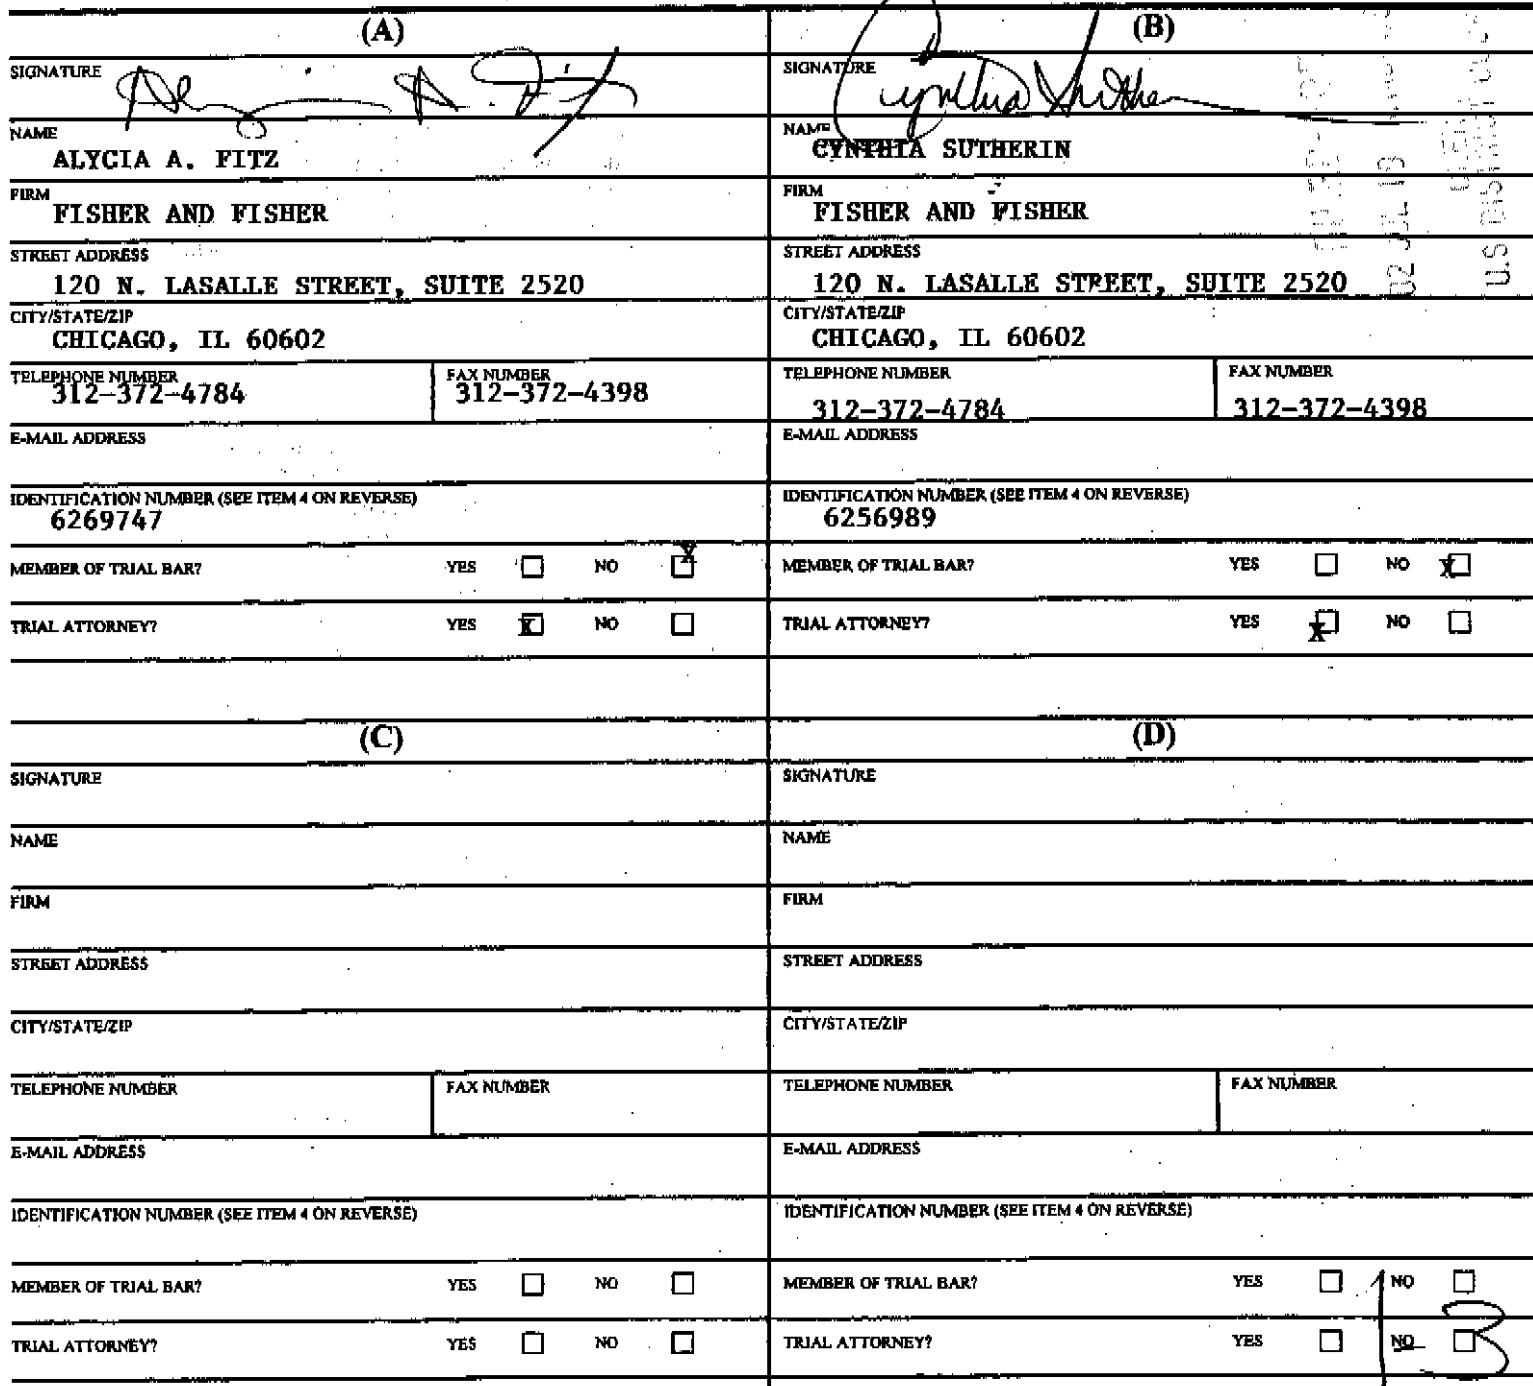 (A)
SIGNATURE
NAME
ALYCIA A. FITZ
FIRM
FISHER AND FISHER
STREET ADDRESS
120 N. LASALLE STREET, SUITE 2520
CITY/STATE/ZIP
CHICAGO, IL 60602
TELEPHONE NUMBER
312-372-4784
FAX NUMBER
312-372-4398
E-MAIL ADDRESS
IDENTIFICATION NUMBER (SEE ITEM 4 ON REVERSE)
6269747
MEMBER OF TRIAL BAR? YES NO X
TRIAL ATTORNEY? YES X NO
(B)
SIGNATURE
Cynthia Sutherin
NAME
CYNTHIA SUTHERIN
FIRM
FISHER AND FISHER
STREET ADDRESS
120 N. LASALLE STREET, SUITE 2520
CITY/STATE/ZIP
CHICAGO, IL 60602
TELEPHONE NUMBER
312-372-4784
FAX NUMBER
312-372-4398
E-MAIL ADDRESS
IDENTIFICATION NUMBER (SEE ITEM 4 ON REVERSE)
6256989
MEMBER OF TRIAL BAR? YES NO X
TRIAL ATTORNEY? YES X NO
U.S
(C)
SIGNATURE
NAME
FIRM
STREET ADDRESS
CITY/STATE/ZIP
TELEPHONE NUMBER
FAX NUMBER
E-MAIL ADDRESS
IDENTIFICATION NUMBER (SEE ITEM 4 ON REVERSE)
MEMBER OF TRIAL BAR? YES NO
TRIAL ATTORNEY? YES NO
(D)
SIGNATURE
NAME
FIRM
STREET ADDRESS
CITY/STATE/ZIP
TELEPHONE NUMBER
FAX NUMBER
E-MAIL ADDRESS
IDENTIFICATION NUMBER (SEE ITEM 4 ON REVERSE)
MEMBER OF TRIAL BAR? YES NO
TRIAL ATTORNEY? YES NO
1-3